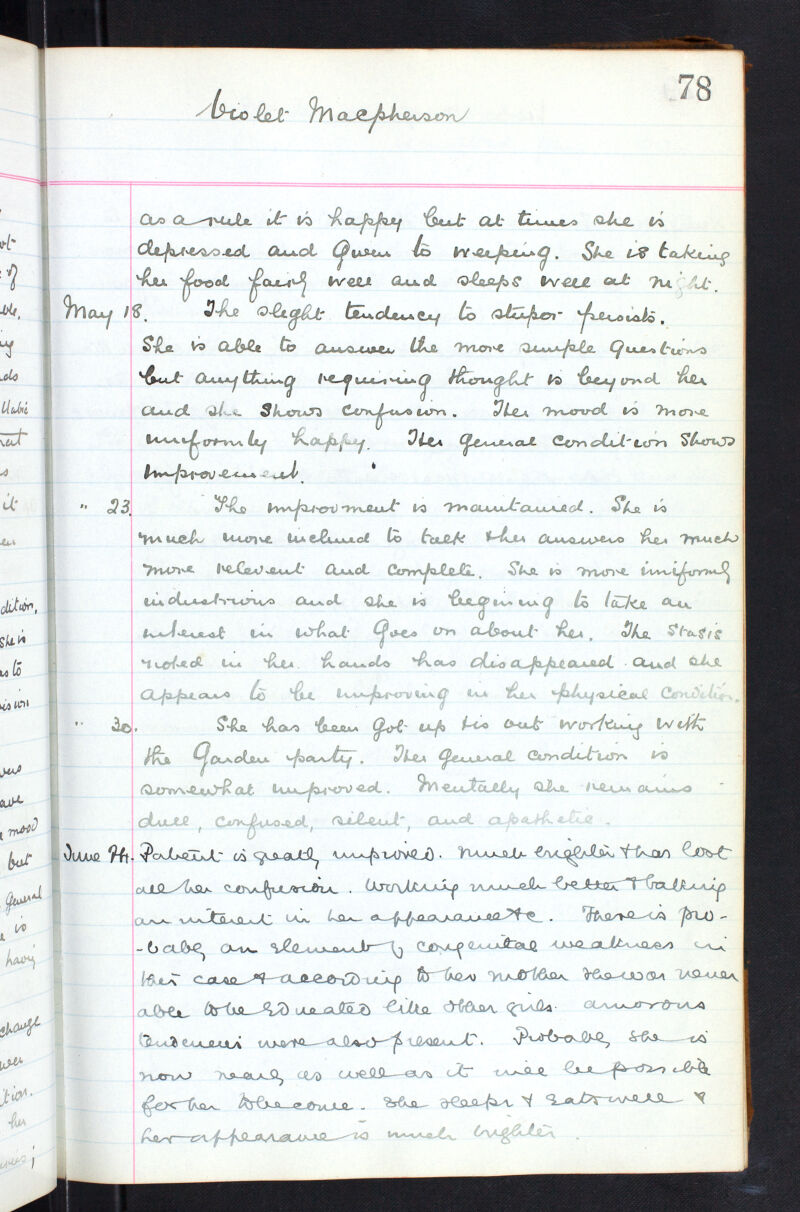 78
Violet Macpherson
as a rule it is happy but at times she is
depressed and given to weeping. She is taking
her food fairly well and sleeps well at night.
May 18. The slight tendency to stupor persists.
She is able to answer the more simple questions
but anything requiring thought is beyond her
and she shows confusion. Her mood is more
uniformly happy. Her general condition shows
improvement.
" 23. The improvment is maintained. She is
much more inclined to talk & her answers her much
more relevent and complete. She is more uniformly
industrious and she is begining to take an
interest in what goes on about her. The stasis
noted in her hands has disappeared and she
appears to be improving in her physical condition.
" 30. She has been got up & is out working with
the Garden party. Her general condition is
somewhat improved. Mentally she remains
dull, confused, silent, and apathetic.
June 24. Patient is greatly improved. Much brighter & has lost
all her confusion. Working much better & taking
an interest in her appearance &c. There is pro-
-bably an element of congenital weakness in
this case & according to her mother she was never
able to be educated like other girls. amorous
tendencies were also present. Probably she is
now nearly as well as it will be possible
for her to become. She sleeps & eats well &
her appearance is much brighter.